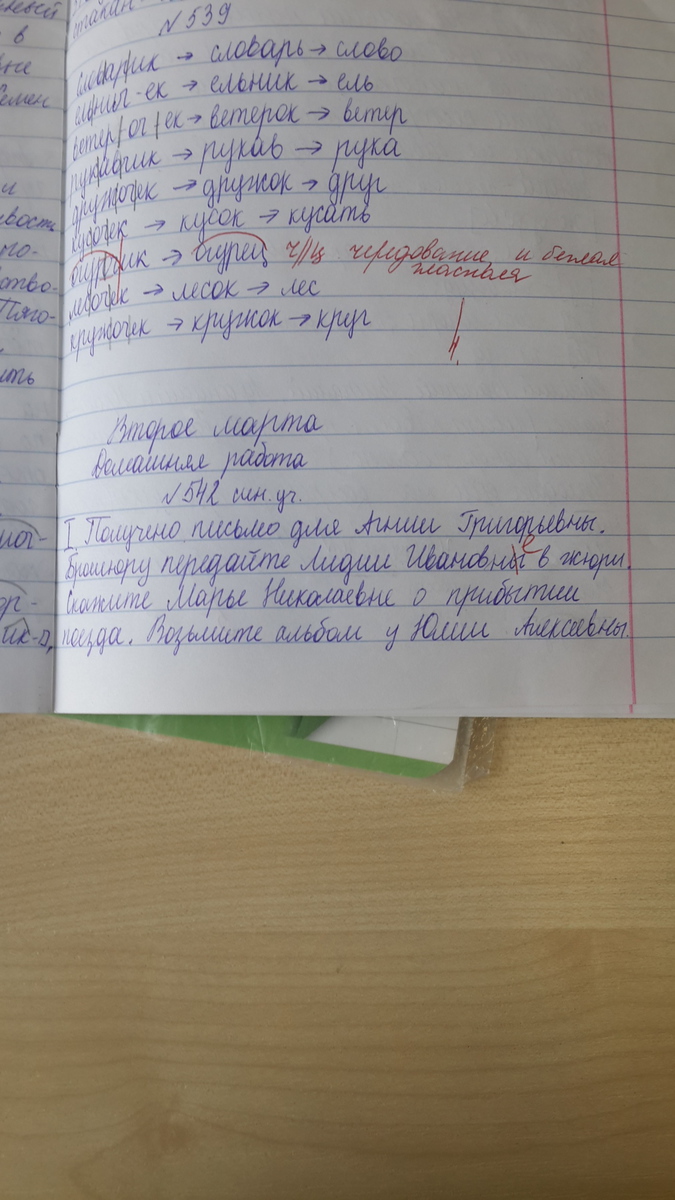 стакан
№539
словарик → словарь → слово
ельнич-ек → ельник → ель
ветер/оч/ек → ветерок → ветер
рукавчик → рукав → рука
дружочек → дружок → друг
кусочек → кусок → кусать
огурчик → огурец ч//ц чередование и беглая гласная
лесочек → лесок → лес
кружочек → кружок → круг
Второе марта
Домашняя работа
№542 син. уч.
I Получено письмо для Агнии Григорьевны.
Брошюру передайте Лидии Ивановны е в жюри.
Скажите Марье Николаевне о прибытии
поезда. Возьмите альбом у Юлии Алексевны.